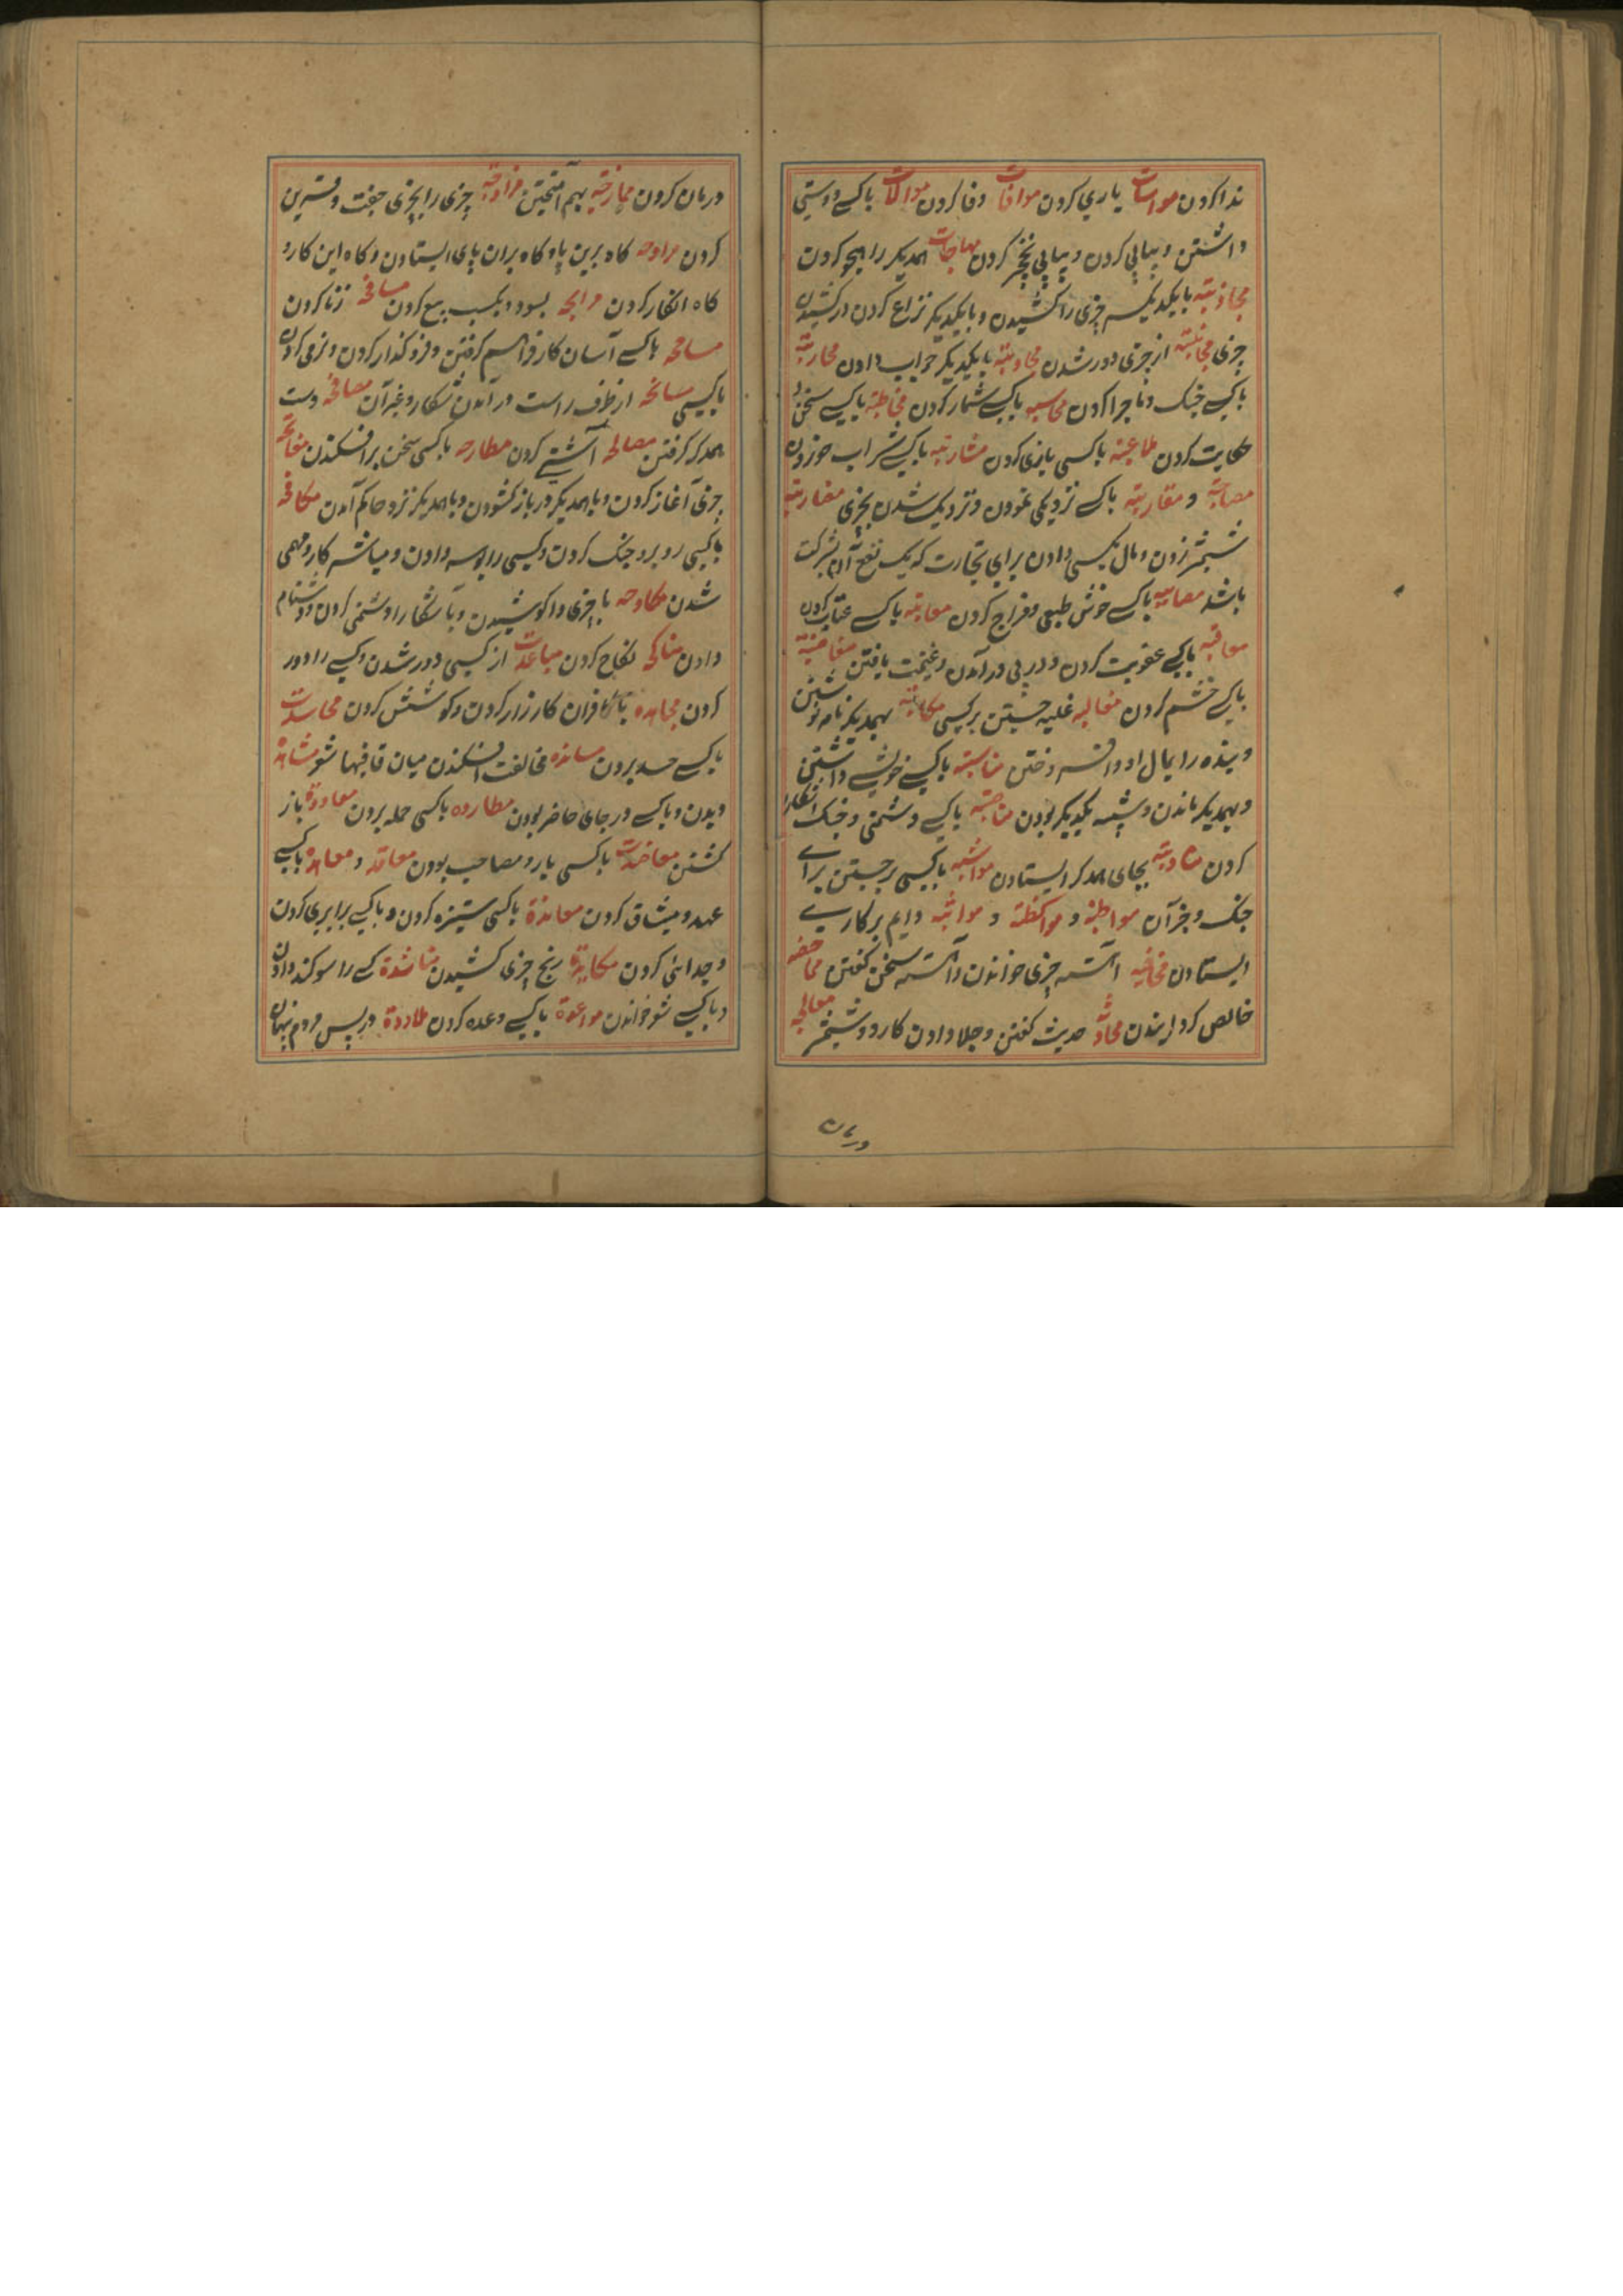 ندا کردن مواسات یاری کردن موافات وفا کردن موالات باکسے دوستی
داشتن و پیاپی کردن و پیاپی کردن مهاجات همدیگر را هجو کردن
مجاذبته بایکدیگر چیزی را کشیدن و بایکدیگر نزاع کردن در کشیدن
چیزی مجانبته از چیزی دور شدن مجاوبته بایکدیگر جواب دادن محاربته
باکسے جنک و ماجرا کردن محاسبه باکسے شمار کردن مخاطبته باکسے سخن و
حکایت کردن ملاعبته باکسی بازی کردن مشاربته باکسے شراب خوردن
مصاحبته و مقاربته باکسے نزدیکی نمودن و نزدیک شدن بچیزی مضاربته
شمشیر زدن و مال بکسی دادن برای تجارت که یک نفع آن بشرکت
باشد باکسے خوش طبعی و مزاح کردن معاتبته باکسے عتاب کردن
معاقبته باکسے عقوبت کردن و در پی در آمدن و غنیمت یافتن مغاضبته
باکسے خشم کردن مغالبه غلبه جستن بر کسی مکاتبته بهمدیگر نامه نوشتن
و بنده را بمال او وا فروختن مناسبته باکسے خویشے داشتن
و بهمدیگر ماندن و شبیه یکدیگر بودن مناصبته باکسے دشمنی و جنک آشکارا
کردن مناوبته بجای همدگر ایستادن مواثبه باکسی برجستن برای
جنک و جز آن مواظبته و مواکظته و مواثبه دایم بر کاری
ایستادن مخافته آهسته چیزی خواندن و آهسته سخن گفتن مماحضه
خالص گردانیدن محادثه حدیث گفتن و جلا دادن کارد و شمشیر معالجه
درمان کردن ممازجته بهم آمیختن مزاوجته چیزی را بچیزی جفت و قرین
کردن مراوحه کاه برین پا و کاه بران پای ایستادن و کاه این کار و
کاه آن کار کردن مرابحه بسود و بکسب بیع کردن مسافحه زنا کردن
مسامحه باکسے آسان کار فراهم کرفتن و فرو کذار کردن و نرمی کردن
باکسی سانحه از طرف راست در آمدن شکار و غیر آن مصافحه دست
همدگر کرفتن مصالحه آشتے کردن مطارحه باکسی سخن بر افکندن مفاتحه
چیزی آغاز کردن و باهمدیگر در باز کشودن و باهمدیگر نزد حاکم آمدن مکافحه
باکسی روبرو جنک کردن و کسی را بوسه دادن و مباشر کار و مهمی
شدن مکاوحه با چیزی وا کوشیدن و باشکارا دشمنی کردن و دشنام
دادن مناکحه نکاح کردن مباعدت از کسی دور شدن و کسے را دور
کردن مجاهده باکافران کارزار کردن و کوشش کردن محاسدت
باکسے حسد بردن سانده مخالفت افکندن میان قافیها شعر مشاهده
دیدن و باکسے در جای حاضر بودن مطارده باکسی حمله بردن معاودة باز
کشتن معاضدت باکسی یار و مصاحب بودن معاقد و معاهده باکسے
عهد و میثاق کردن معاندة باکسی ستیزه کردن و باکسے برابری کردن
و جدائی کردن مکابدة رنج چیزی کشیدن مناشدة کسے را سوکند دادن
و باکسے شعر خواندن مواعدة باکسے وعده کردن ملاددة در پس مردم پنهان
درمان